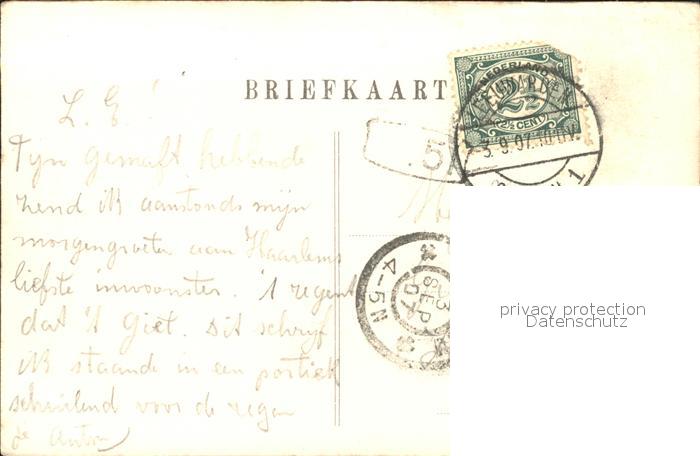 BRIEFKAART
NEDERLAND
2½
(2½ CENT)
LEEUWARDEN
3.9.07.10.0V.
1
.5
4-5N
3
SEP
07
L. E!
Fijn gemaft hebbende
zend ik aanstonds mijn
morgengroeten aan Haarlems
liefste inwoonster. 't regent
dat 't giet. Dit schrijf
ik staande in een portiek
schuilend voor de regen
je Anton
privacy protection
Datenschutz